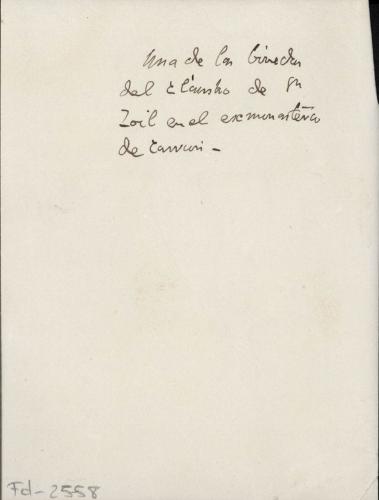 Una de las bóvedas
del Claustro de Sn
Zoil en el exmonasterio
de Carrion -
Fd-2558